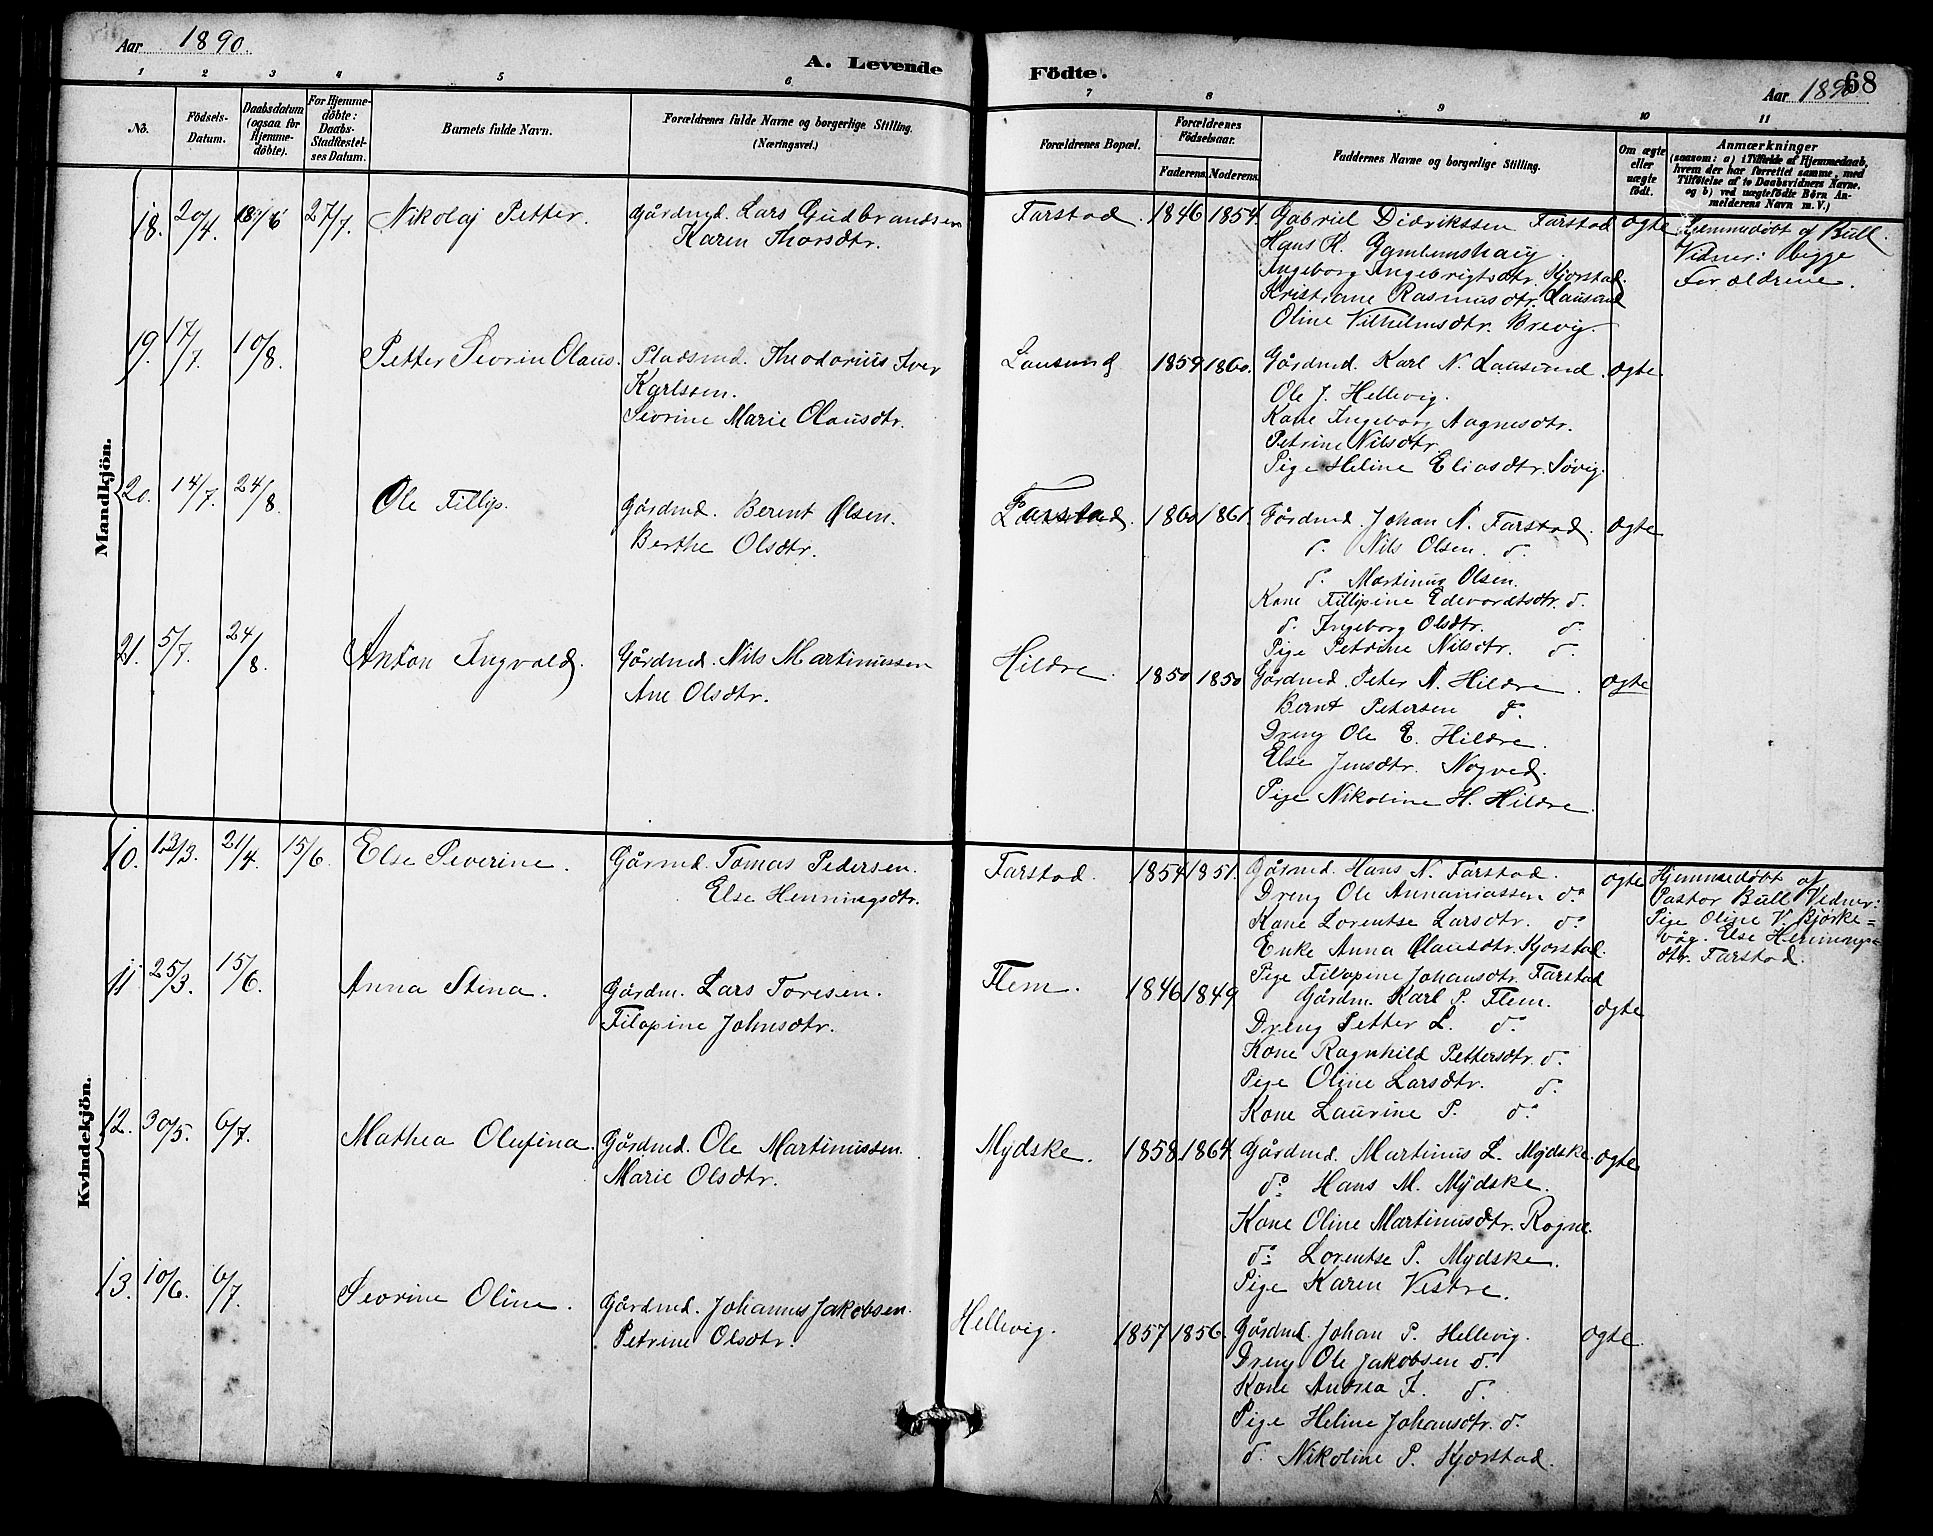 Aar 1890.
A. Levende Födte.
Aar 1890
68
1 2 3 4 5 6 7 8 9 10 11
No.
Födsels-Datum.
Daabsdatum (ogsaa for Hjemme-döbte).
For Hjemme-döbte: Daabs-Stadfæstel-ses Datum.
Barnets fulde Navn.
Forældrenes fulde Navne og borgerlige Stilling. (Næringsvei.)
Forældrenes Bopæl.
Forældrenes Födselsaar.
Faderens. Moderens.
Faddernes Navne og borgerlige Stilling.
Om ægte eller uægte födt.
Anmærkninger
(saasom: a) i Tilfælde af Hjemmedaab,
hvem der har forrettet samme, med
Tilföielse af to Daabsvidners Navne,
og b) ved uægtefödte Börn An-
melderens Navn m. V.)
Mandkjön.
18. 20/4. 18/6 27/7. Nikolaj Petter. Gårdmd. Lars Gudbrandsen Farstad. 1846 1854. Gabriel Didrikssen Farstad ægte Hjemmedøbt af Bull.
Karen Thorsdtr. Hans K. Gamlemshaug. Vidner: begge
Ingeborg Ingebrigtsdtr. Kjørstad. Forældrene.
Kristiane Rasmusdtr. Lausund
Oline Vilhelmsdtr. Brevig.
19. 17/7. 10/8. Petter Severin Olaus. Pladsmd. Theodorius Iver Lausund 1859 1860. Gårdmd. Karl N. Lausund. ægte.
Karlsen. Ole J. Hellevig.
Severine Marie Olausdtr. Kone Ingeborg Aagnesdtr.
Petrine Nilsdtr.
Pige Heline Eliasdtr. Søvig.
20. 14/7. 24/8. Ole Fillip. Gårdmd. Berent Olsen. Farstad. 1860 1861. Gårdmd. Johan N. Farstad. ægte
Berthe Olsdtr. d. Nils Olsen. d.
d. Martinus Olsen.
Kone Fillipine Edevardtsdtr. d.
d. Ingeborg Olsdtr. d.
Pige Petrine Nilsdtr. d.
21. 5/7. 24/8. Anton Ingvald. Gårdmd. Nils Martinussen Hildre. 1850 1850 Gårdmd. Peter N. Hildre. ægte
Ane Olsdtr. Bernt Petersen d.
Dreng Ole E. Hildre.
Else Jensdtr. Nogved.
Pige Nikoline H. Hildre.
Kvindekjön.
10. 12/3. 21/4. 15/6. Else Severine. Gårmd. Tomas Pedersen. Farstad. 1854 1851. Gårmd. Hans N. Farstad. ægte Hjemmedøbt af
Else Henningsdtr. Dreng Ole Annaniassen do Pastor Bull Vidner:
Kone Lorentse Larsdtr. do Pige Oline V. Bjørke=
Enke Anna Olausdtr. Kjørstad. våg. Else Hennings=
Pige Filopine Johansdtr. Farstad dtr. Farstad.
11 25/3. 15/6. Anna Stina. Gårdm. Lars Toresen. Flem. 1846 1849 Gårdm. Karl P. Flem. ægte
Filopine Johnsdtr. Dreng Petter L. do
Kone Ragnhild Pettersdtr. d.
Pige Oline Larsdtr. d.
Kone Laurine P. do
12. 30/5. 6/7. Mathea Olufina. Gårdmd. Ole Martinussen. Mydske. 1858 1864 Gårdmd. Martinus L. Mydske. ægte
Marie Olsdtr. do Hans M. Mydske.
Kone Oline Martinusdtr. Rogne.
do Lorentse P. Mydske.
Pige Karen Vestre.
13. 10/6. 6/7. Severine Oline. Gårdmd. Johannes Jakobsen. Hellevig. 1857 1856. Gårdmd. Johan P. Hellevig. ægte
Petrine Olsdtr. Dreng Ole Jakobsen d.
Kone Andrea I. d.
Pige Heline Johansdtr. d.
d. Nikoline P. Kjørstad.